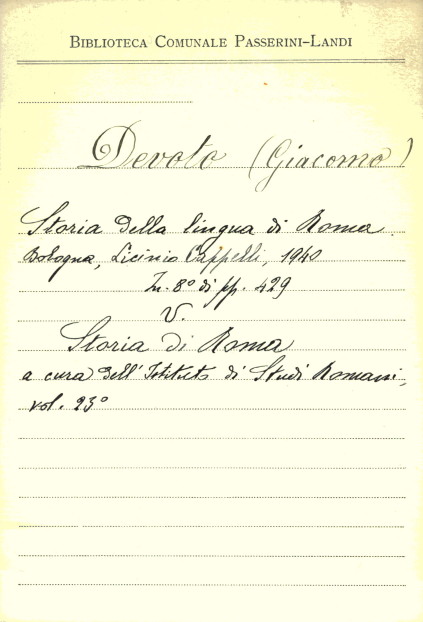 BIBLIOTECA COMUNALE PASSERINI-LANDI
Devoto (Giacomo)
Storia della lingua di Roma.
Bologna, Licinio Cappelli, 1940
In-8° di pp. 429
V.
Storia di Roma
a cura dell'Istituto di Studi Romani,
vol. 23°